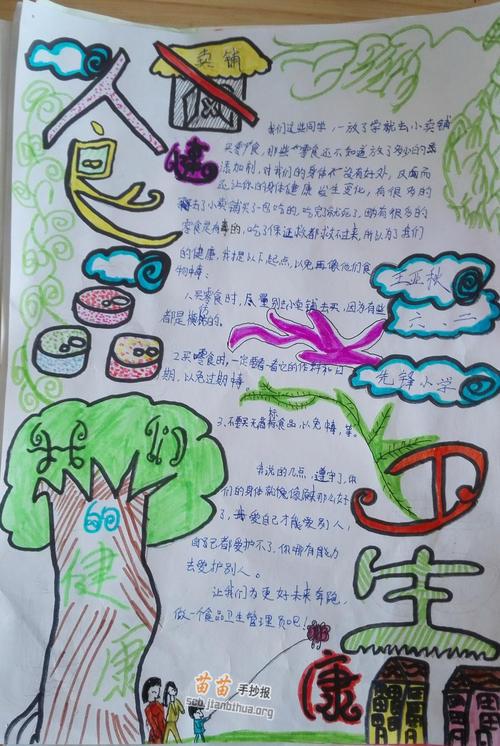 食
卖铺
健
我们这些同学，一放了学就去小卖铺
买零食，那些零食还不知道放了多少的
添加剂，对我们的身体没有好处，反而
还让你的身体健康发生变化，有很多的
去了小卖铺买了一包吃的，吃完就死了，那有很多的
零食是有毒的，吃了保证救都救不过来，所以为了我们
的健康，我提以下起点，以免再像他们食
物中毒：
1.买零食时，尽量别去小卖铺去买，因为有些
都是
2.买零食时，一定要看看它的作料和日
期，以免过期
3.不要买无商标食品，以免
王亚秋
六.二
先锋小学
卫生
我们
的
健
康
我说的几点，遵守了，你
们的身体就
了，我爱自己才能爱别人，
自己都爱护不了，你哪有能力
去爱护别人。
让我们为更好未来奔跑，
做一个食品卫生管理员吧！
康
苗苗 手抄报
scb.jianbihua.org